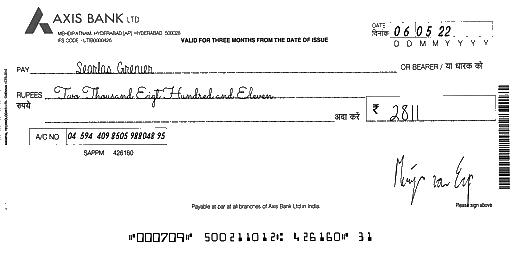 AXIS BANK LTD
MEHDIPATNAM, HYDERABAD(AP) HYDERABAD 500028
IFS CODE - UTIB0000426
VALID FOR THREE MONTHS FROM THE DATE OF ISSUE
DATE दिनांक 06 05 22
D D M M Y Y Y Y
PAY Searlas Grenier OR BEARER / या धारक को
RUPEES रुपये Two Thousand Eigt Hundred and Eleven
अदा करें ₹ 2811
A/C NO 04 594 409 8605 988048 95
SAPPM 426160
Payable at par at all branches of Axis Bank Ltd in India.
Please sign above
"000709" 500211012: 426160" 31